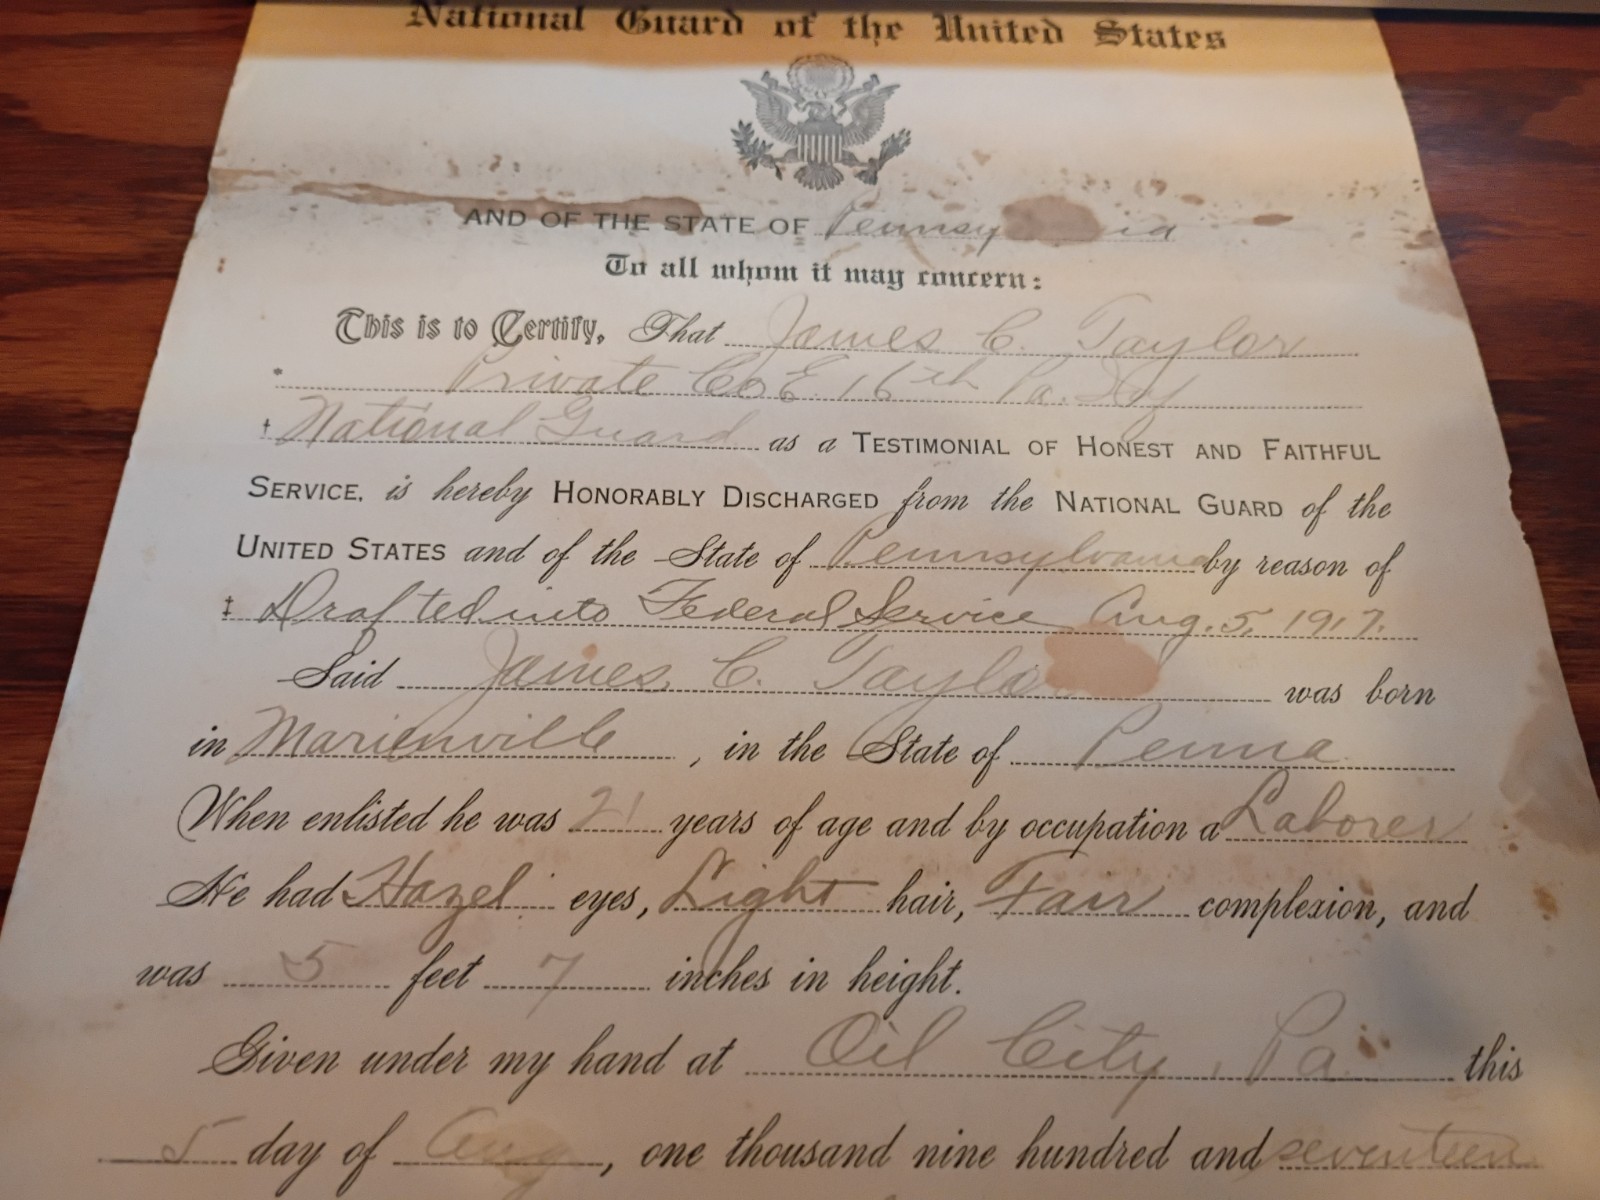 National Guard of the United States
AND OF THE STATE OF Pennsy ia
To all whom it may concern:
This is to Certify, That James C. Taylor
* Private Co E. 16th Pa. Inf
† National Guard as a TESTIMONIAL OF HONEST AND FAITHFUL
SERVICE, is hereby HONORABLY DISCHARGED from the NATIONAL GUARD of the
UNITED STATES and of the State of Pennsylvania by reason of
‡ Drafted into Federal Service Aug. 5, 1917.
Said James C. Taylor was born
in Marienville, in the State of Penna.
When enlisted he was 21 years of age and by occupation a Laborer
He had Hazel eyes, Light hair, Fair complexion, and
was 5 feet 7 inches in height.
Given under my hand at Oil City, Pa. this
5 day of Aug, one thousand nine hundred and seventeen